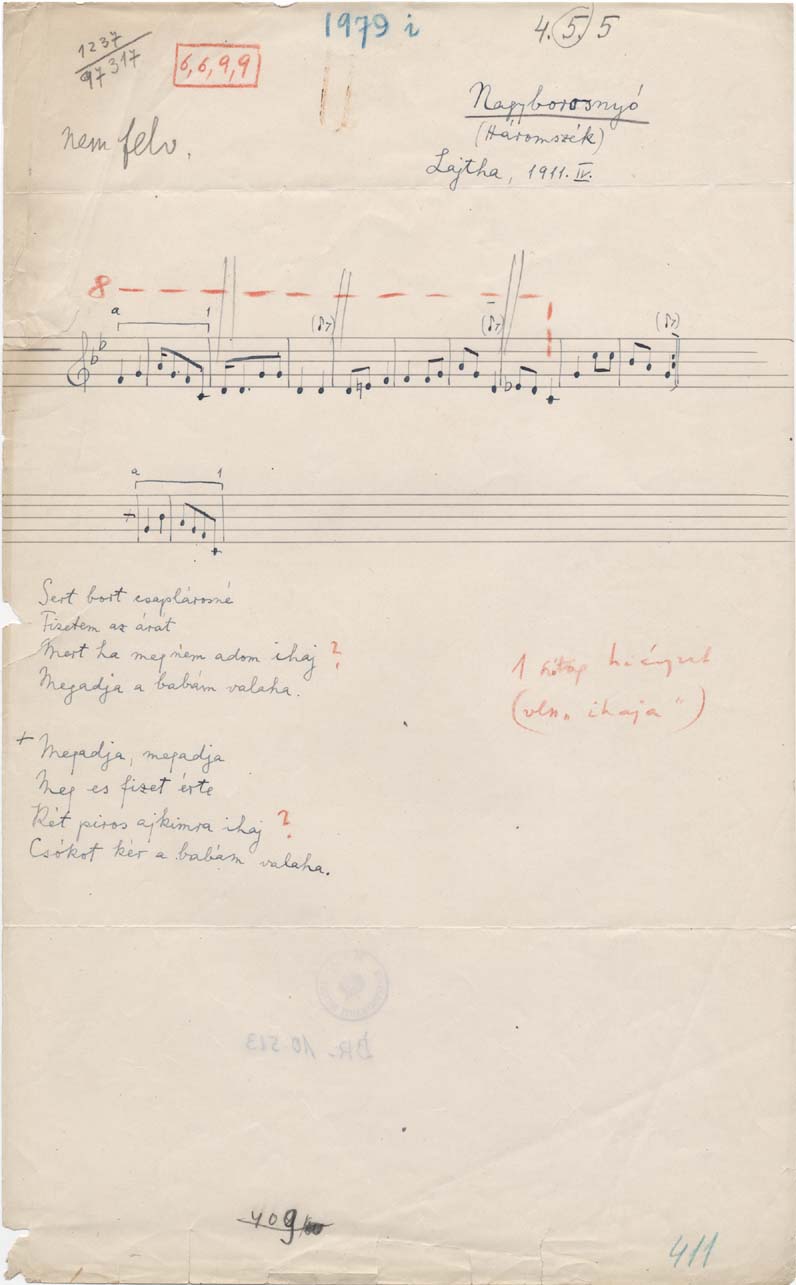 1979 i
4. 5. 5
1237
97317
6,6,9,9
nem felv.
Nagyborosnyó
(Háromszék)
Lajtha, 1911. IV.
8
a 1
a 1
+
Sert bort csaplárosné
Fizetem az árát
Mert ha megnem adom ihaj ?
Megadja a babám valaha.
1 szótag hiányzik
(vln „ihaja")
+ Megadja, megadja
Meg es fizet érte
Két piros ajkimra ihaj ?
Csókot kér a babám valaha.
BR. 10.513
409
411